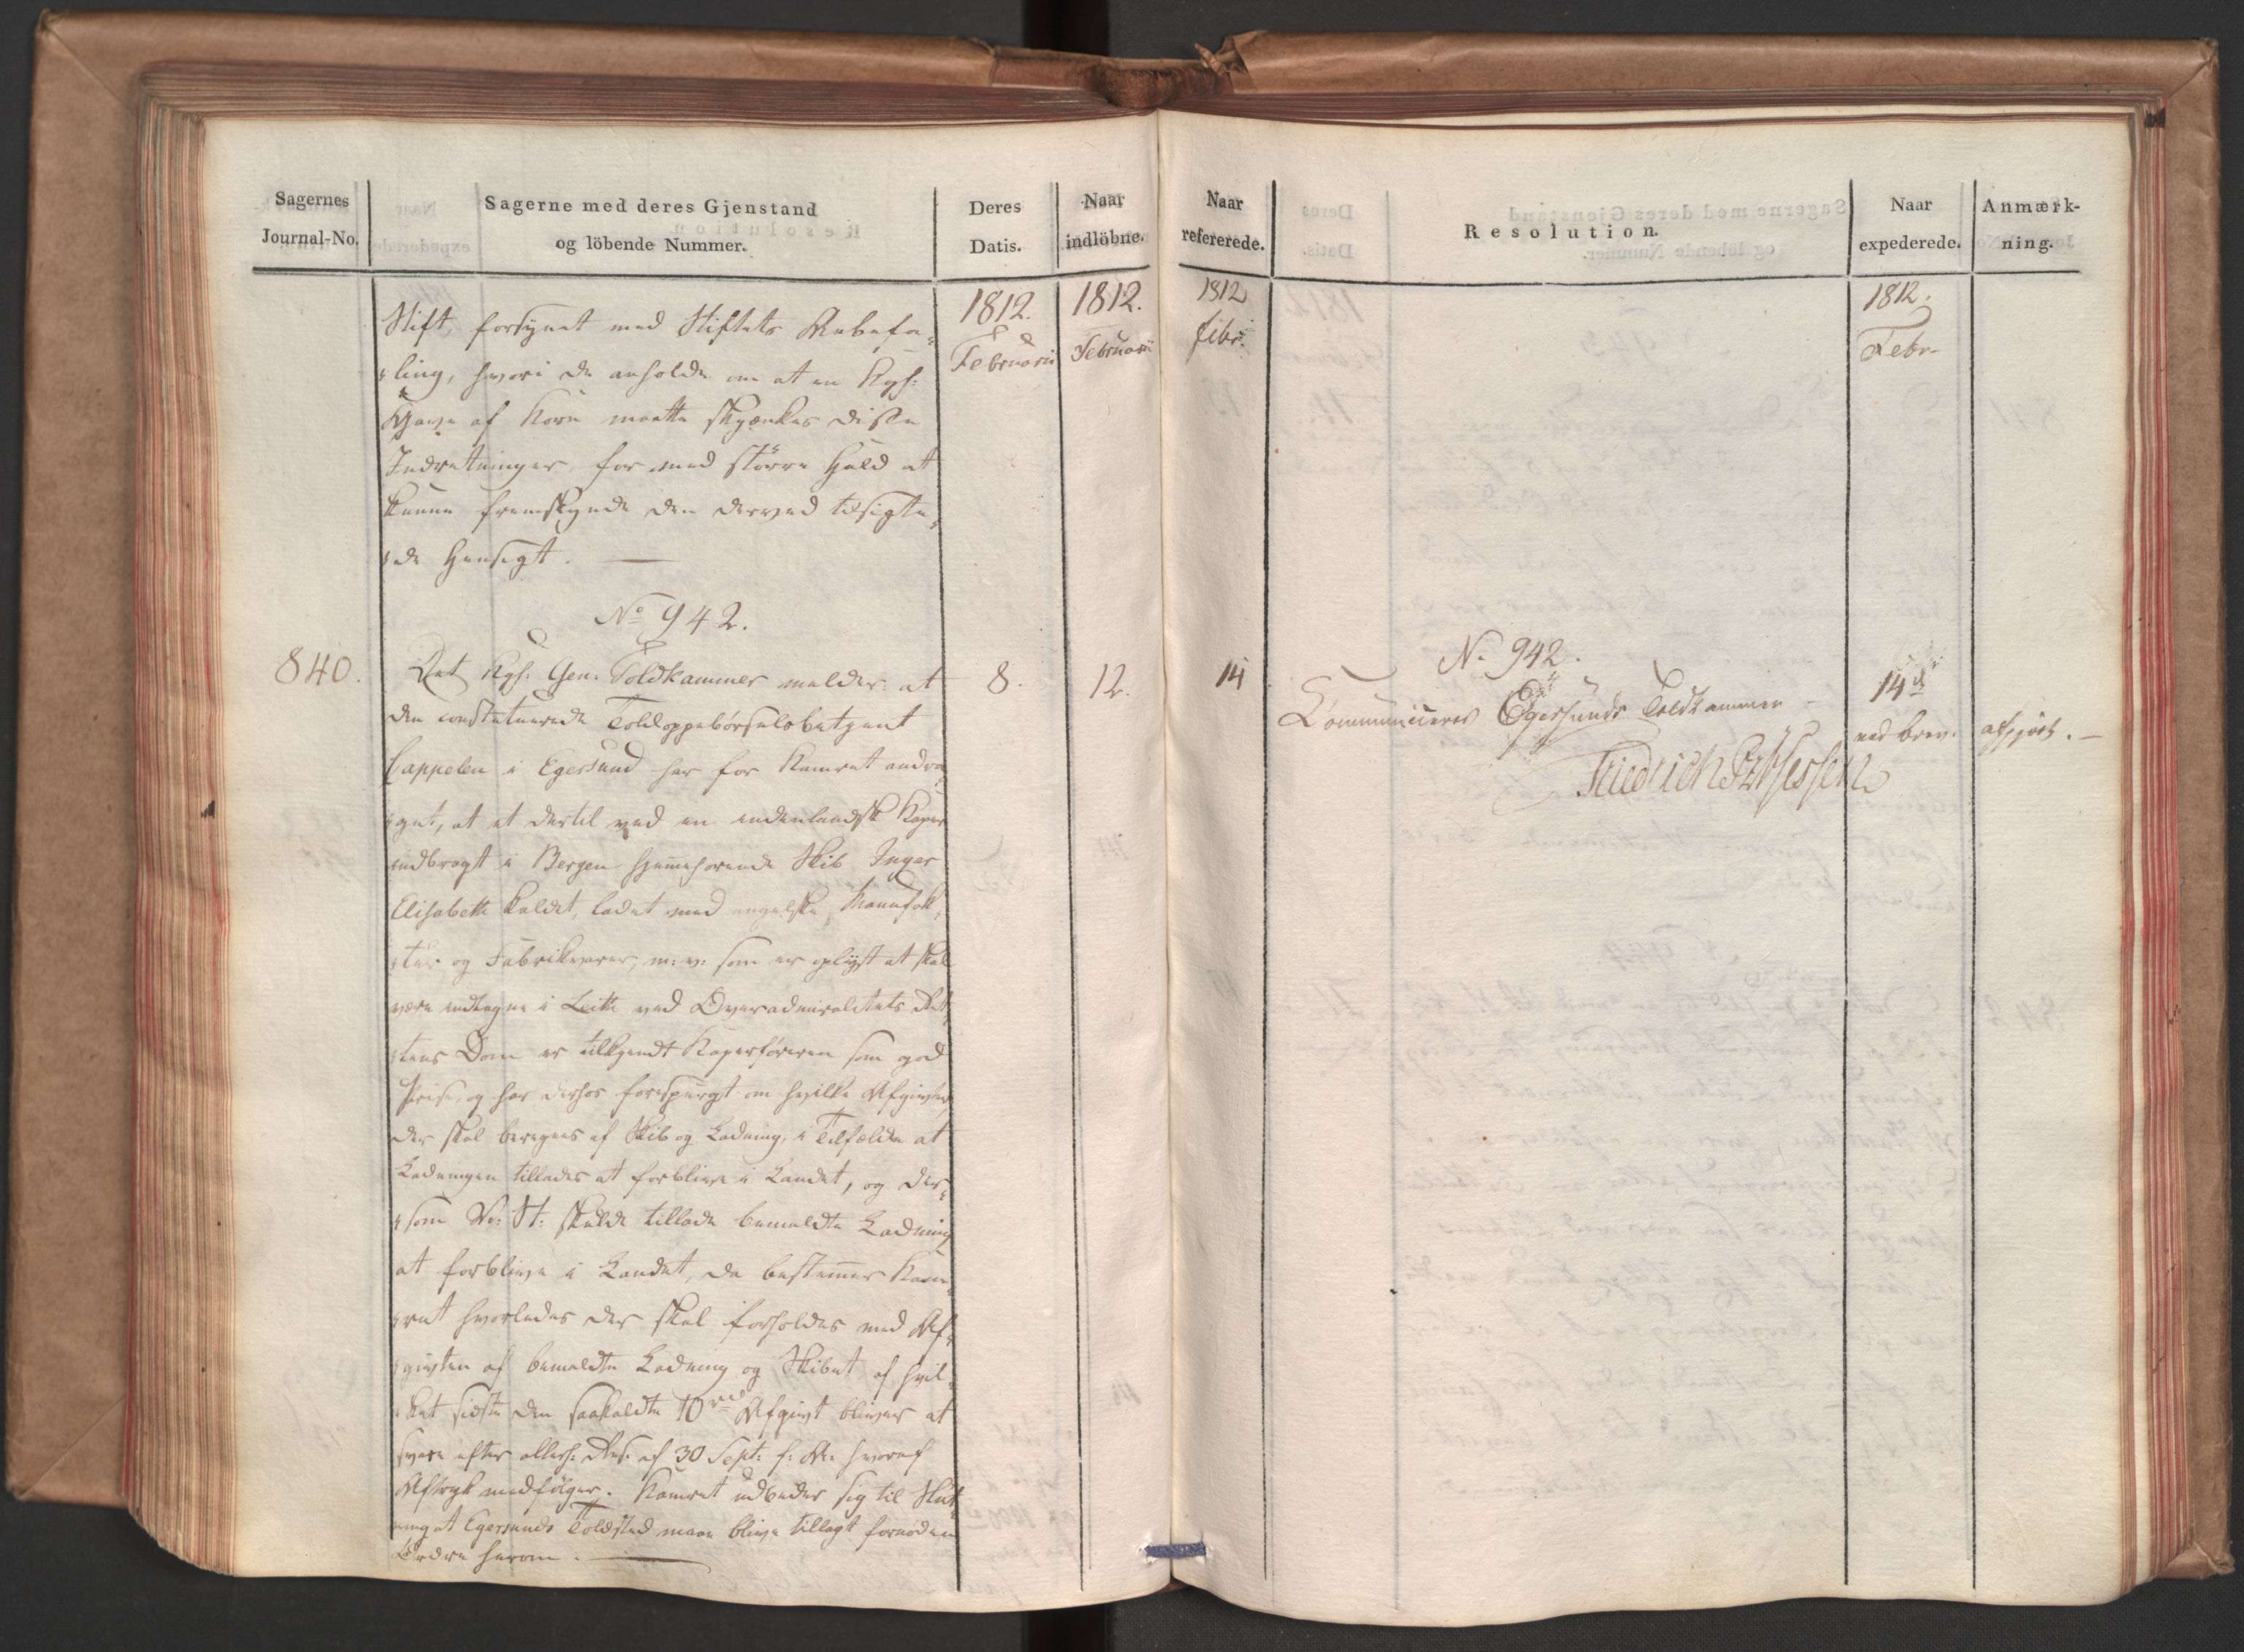 Sagernes
Journal-No.
Sagerne med deres Gjenstand
og löbende Nummer.
Deres
Datis.
Naar
indlöbne.
1812.
Februarii
1812.
Februarii
Stift, forsynet med Stiftets Anbefa-
ling, hvori de anholde om at en Kgl:
Gave af Korn maatte skjænkes disse
Indretninger, for med större Held at
kunne fremskynde den derved tilsigte-
de Hensigt.
No 942.
840.
Det Kgl: Gen: Toldkammer melder: at
8.
12.
den constituerede Toldoppebörselsbetjent
Cappelen i Egersund har for Kamret andra-
get, at et dertil ved en indenlandsk Kaper
indbragt i Bergen hjemmehörende Skib Inger
Elisabeth kaldet, ladet med engelske Manufak-
tur og Fabrikvarer, m: v: som er oplyst at skal
være indtagne i Leith ved Overadmiralitets Ret-
tens Dom er tilkjendt Kaperföreren som god
Prise, og har derhos forespurgt om hvilke Afgivter
der skal beregnes af Skib og Ladning, i Tilfælde at
Ladningen tillades at forblive i Landet, og der-
som St: skulde tillade bemeldte Ladning
at forblive i Landet, da bestemmer Kam-
ret hvorledes der skal forholdes med Af-
givten af bemeldte Ladning og Skibet af hvil-
ket sidste den saakaldte 10de Afgivt bliver at
svare efter allerh: Res: af 30 Sept: f: A: hvoraf
Aftryk medfölger. Kamret udbeder sig til Slut-
ning at Egersunds Toldsted maae blive tillagt fornöden
Ordre herom.
Naar
refererede.
Resolution.
Naar
expederede.
Anmærk-
ning.
1812
Febr.
1812.
Febr.
No 942.
14
Communiceres Egersunds Toldkammer
14de
ved brev.
afgjort.
Friedrich PzHessen